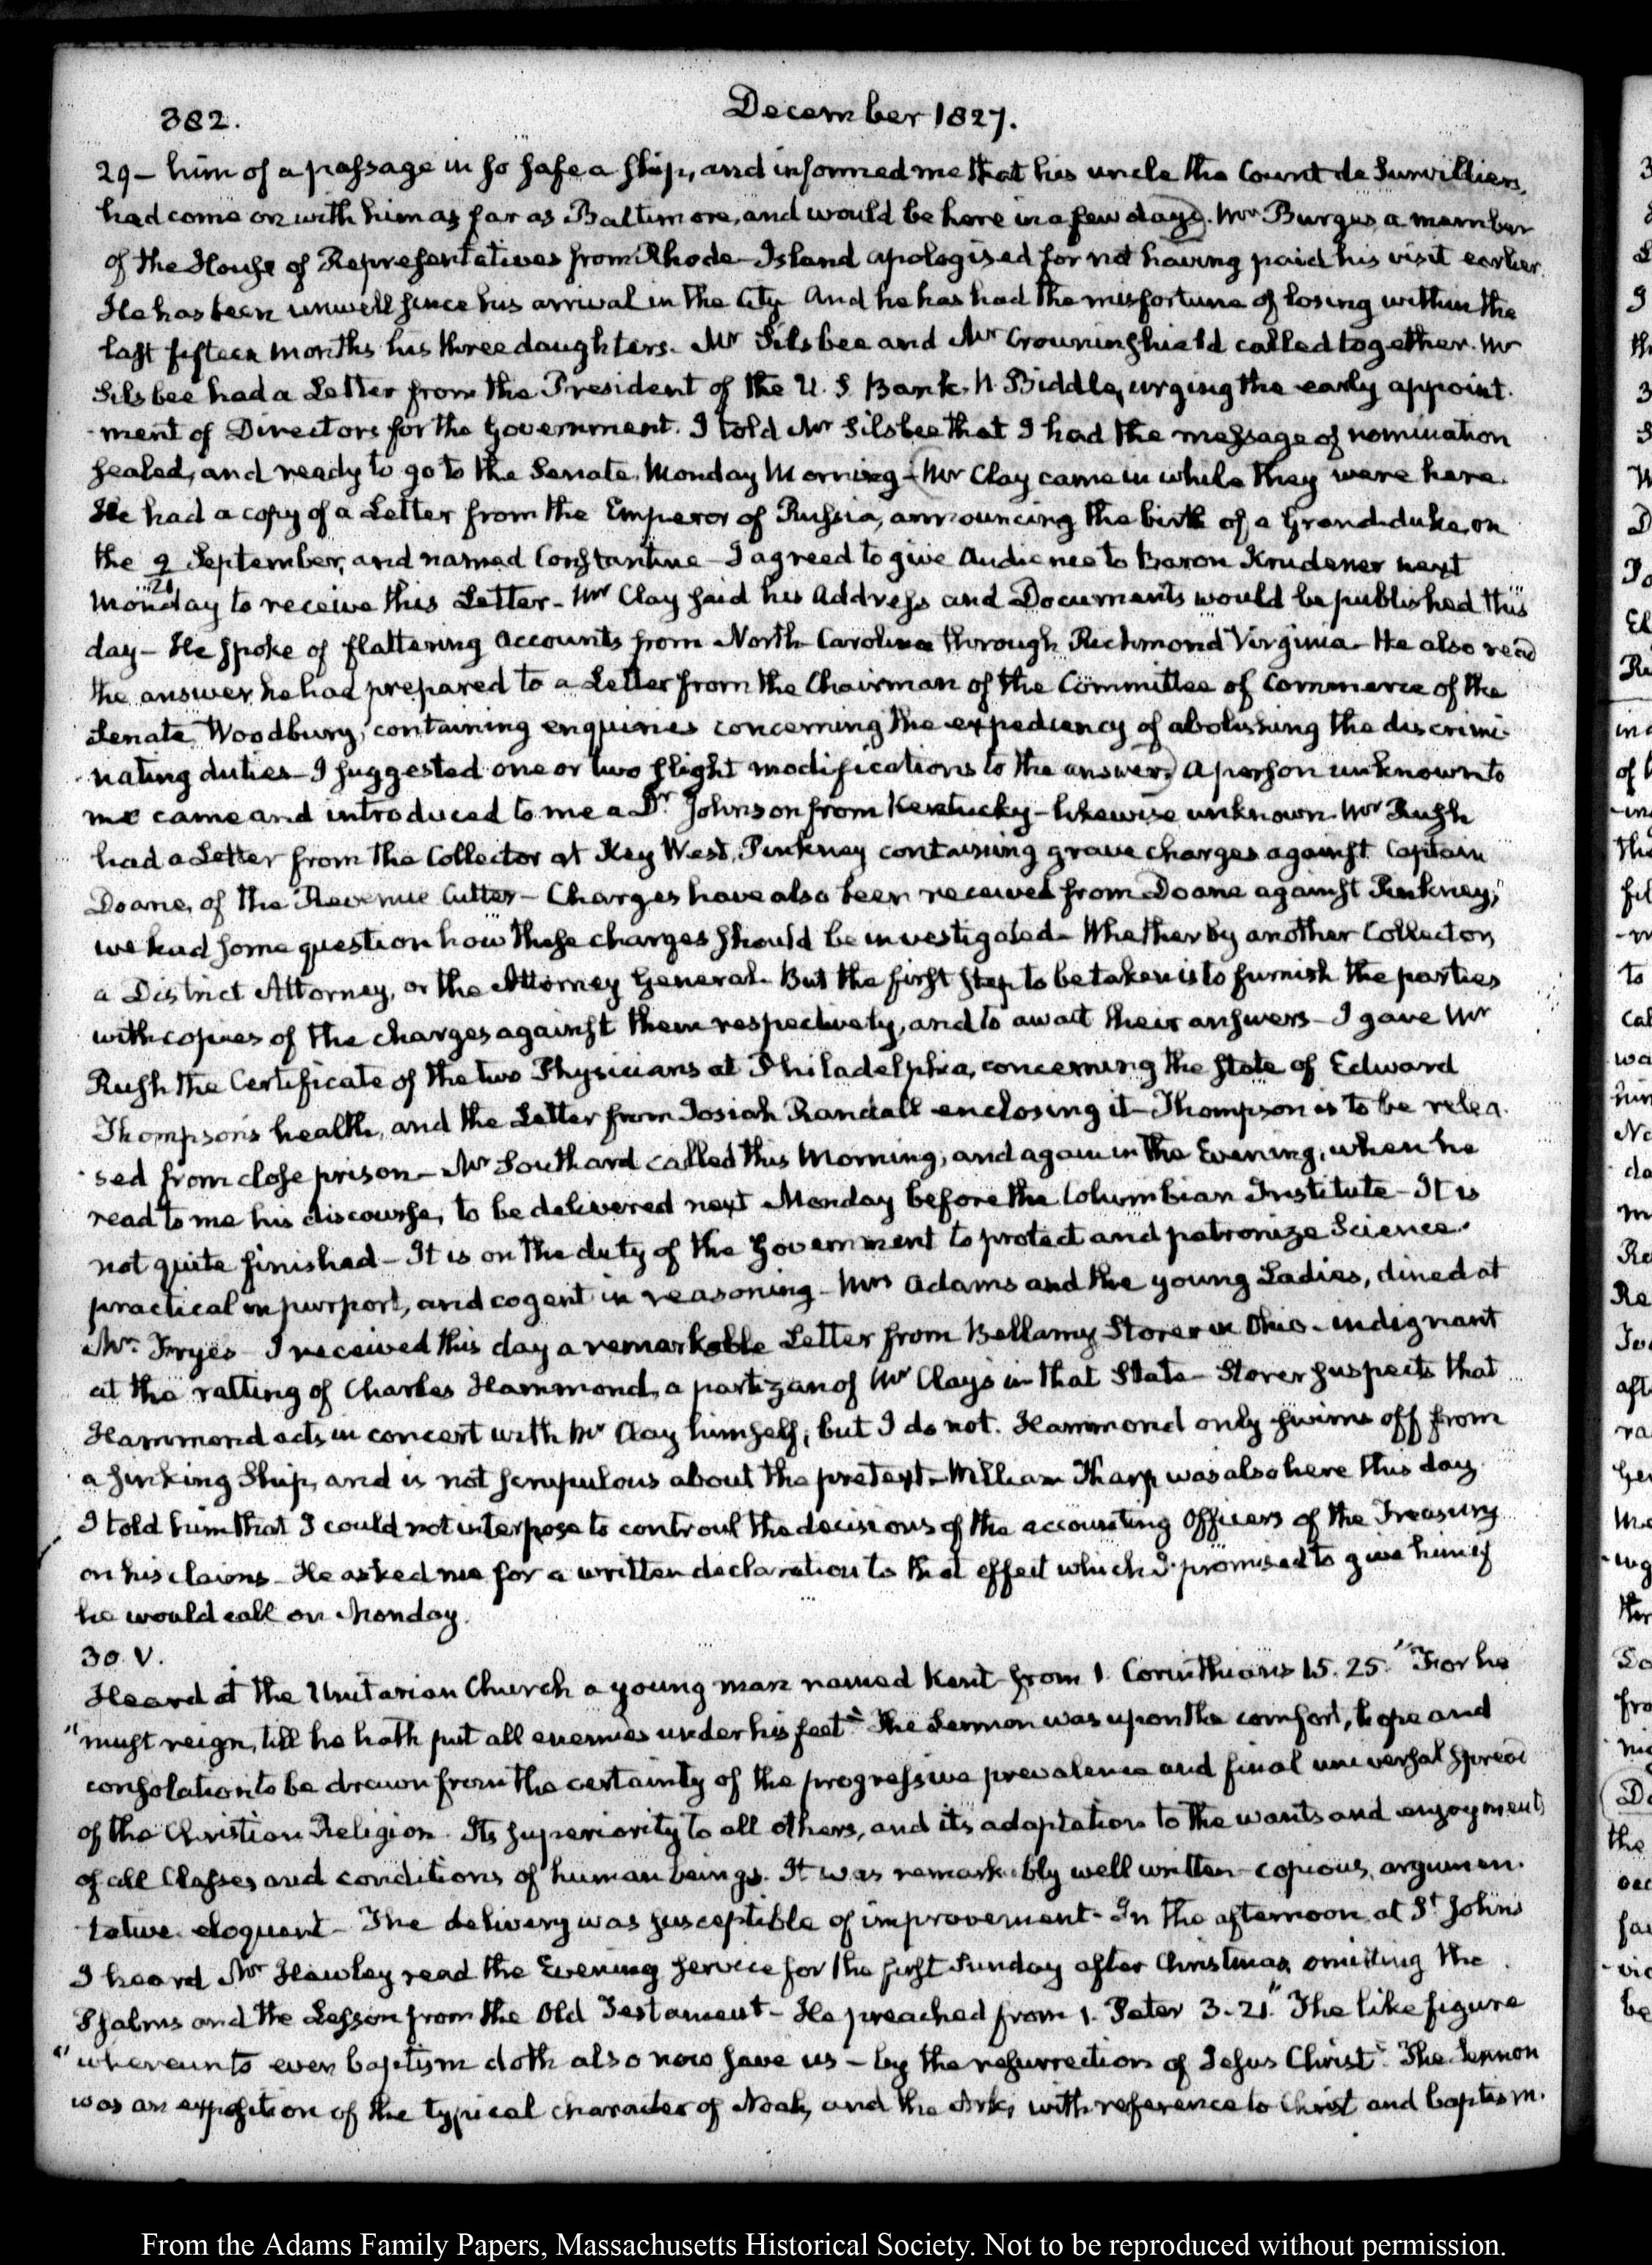 382.
December 1827.
29 – him of a passage in so safe a ship, and informed me that his uncle the Count de Survilliers,
had come on with him as far as Baltimore, and would be here in a few days. Mr Burges a member
of the House of Representatives from Rhode-Island apologised for not having paid his visit earlier.
He has been unwell since his arrival in the City And he has had the misfortune of losing within the
last fifteen months his three daughters. Mr Silsbee and Mr Crowninshield called together. Mr
Silsbee had a Letter from the President of the U. S. Bank. N. Biddle, urging the early appoint-
-ment of Directors for the Government. I told Mr Silsbee that I had the message of nomination
sealed, and ready to go to the Senate, Monday Morning – Mr Clay came in while they were here.
He had a copy of a Letter from the Emperor of Russia, announcing the birth of a Grand-duke, on
the 9/21 September, and named Constantine – I agreed to give Audience to Baron Krudener next
Monday to receive this Letter – Mr Clay said his Address and Documents would be published this
day – He spoke of flattering accounts from North-Carolina through Richmond Virginia – He also read
the answer he had prepared to a Letter from the Chairman of the Committee of Commerce of the
Senate, Woodbury, containing enquiries concerning the expediency of abolishing the discrimi-
-nating duties – I suggested one or two slight modifications to the answer. A person unknown to
me came and introduced to me a Dr. Johnson from Kentucky – likewise unknown. Mr Rush
had a Letter from the Collector at Key West, Pinkney containing grave charges against Captain
Doane, of the Revenue Cutter – Charges have also been received from Doane against Pinkney;
we had some question how these charges should be investigated – Whether by another Collector,
a District Attorney, or the Attorney General. But the first step to be taken is to furnish the parties
with copies of the charges against them respectively, and to await their answers – I gave Mr
Rush the Certificate of the two Physicians at Philadelphia, concerning the state of Edward
Thompson's health, and the Letter from Josiah Randall enclosing it – Thompson is to be relea-
-sed from close prison – Mr Southard called this Morning, and again in the Evening, when he
read to me his discourse, to be delivered next Monday before the Columbian Institute – It is
not quite finished – It is on the duty of the Government to protect and patronize Science.
practical in purport, and cogent in reasoning – Mrs Adams and the young Ladies, dined at
Mr. Fryes – I received this day a remarkable Letter from Bellamy Storer in Ohio – indignant
at the ratting of Charles Hammond, a partizan of Mr Clay's in that State – Storer suspects that
Hammond acts in concert with Mr Clay himself; but I do not. Hammond only swims off from
a sinking Ship, and is not scrupulous about the pretext – William Tharp was also here this day
I told him that I could not interpose to controul the decisions of the accounting Officers of the Treasury
on his claims – He asked me for a written declaration to that effect which I promised to give him if
he would call on Monday.
30 V.
Heard at the Unitarian Church a young man named Kent from 1. Corinthians 15. 25. "For he
"must reign, till he hath put all enemies under his feet" The Sermon was upon the comfort, hope and
consolation to be drawn from the certainty of the progressive prevalence and final universal spread
of the Christian Religion. Its superiority to all others, and its adaptation to the wants and enjoyments
of all Classes and conditions of human beings. It was remarkably well written – copious, argumen-
tative eloquent – The delivery was susceptible of improvement – In the afternoon at St Johns
I heard Mr Hawley read the Evening service for the first Sunday after Christmas, omitting the
Psalms and the Lesson from the Old Testament – He preached from 1. Peter 3. 21. "The like figure
"whereunto even baptism doth also now save us – by the resurrection of Jesus Christ" The Sermon
was an exposition of the typical character of Noah, and the Ark, with reference to Christ and baptism.
From the Adams Family Papers, Massachusetts Historical Society. Not to be reproduced without permission.